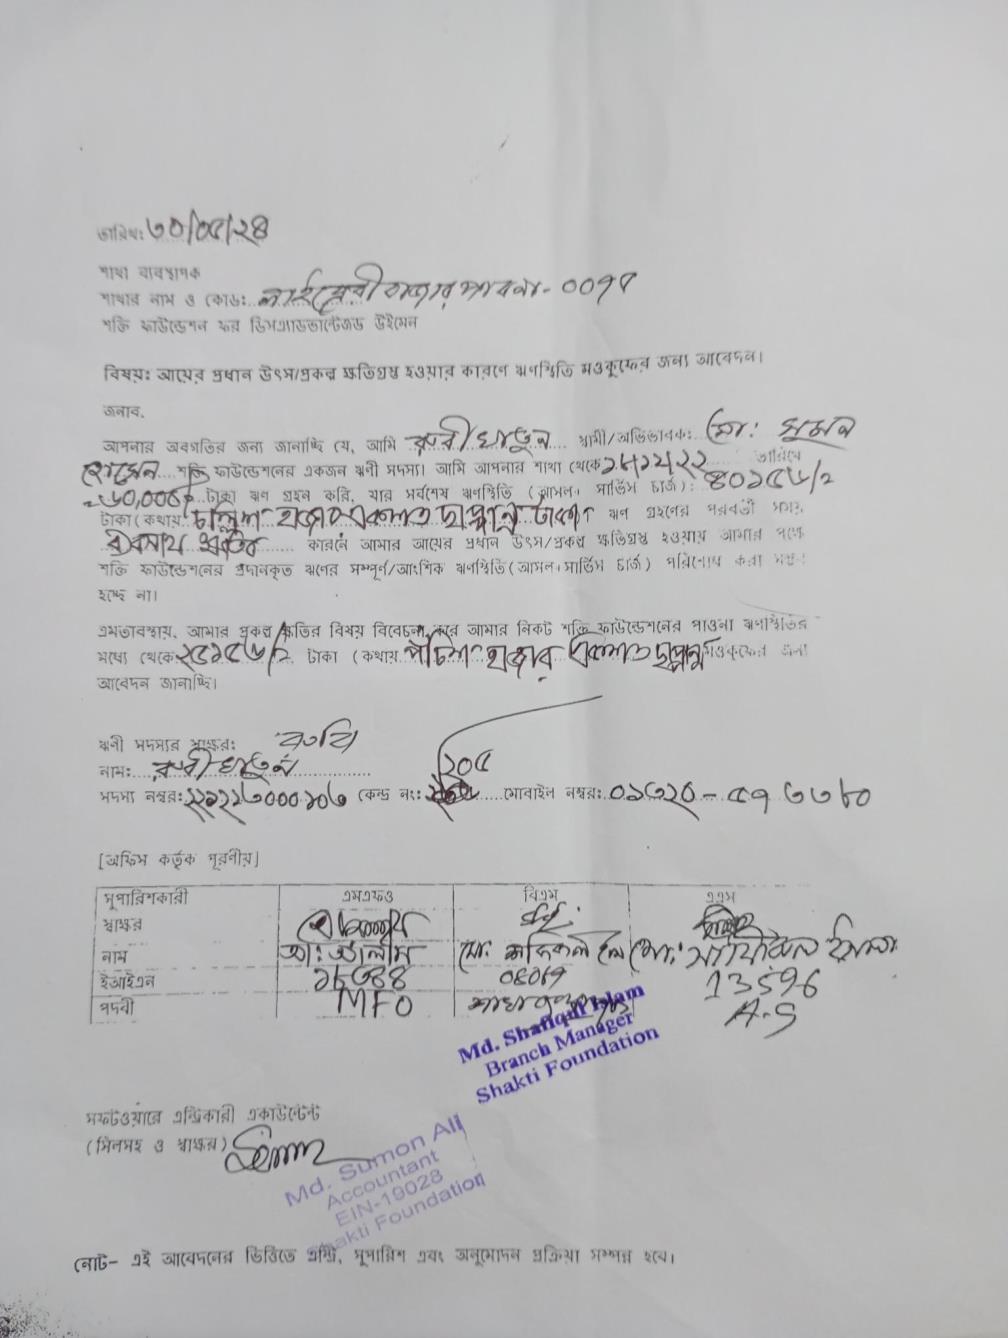 তারিখ: ৩০/০৫/২৪
শাখা ব্যবস্থাপক
শাখার নাম ও কোড: লাইব্রেরী বাজার পাবনা- ০০৭৫
শক্তি ফাউন্ডেশন ফর ডিসএ্যাডভান্টেজড উইমেন
বিষয়ঃ আয়ের প্রধান উৎস/প্রকল্প ক্ষতিগ্রস্থ হওয়ার কারণে ঋণস্থিতি মওকুফের জন্য আবেদন।
জনাব,
আপনার অবগতির জন্য জানাচ্ছি যে, আমি রুবী খাতুন স্বামী/অভিভাবক: মো: সুমন
হোসেন শক্তি ফাউন্ডেশনের একজন ঋণী সদস্য। আমি আপনার শাখা থেকে তারিখে
=৬০,০০০/= টাকা ঋণ গ্রহন করি, যার সর্বশেষ ঋণস্থিতি (আসল+ সার্ভিস চার্জ): ৪০১৫৬/=
টাকা (কথায় চল্লিশ হাজার একশত ছাপ্পান্ন টাকা ঋণ গ্রহণের পরবর্তী সময়
কারনে আমার আয়ের প্রধান উৎস/প্রকল্প ক্ষতিগ্রস্থ হওয়ায় আমার পক্ষে
শক্তি ফাউন্ডেশনের প্রদানকৃত ঋণের সম্পূর্ণ/আংশিক ঋণস্থিতি (আসল+সার্ভিস চার্জ) পরিশোধ করা সম্ভব
হচ্ছে না।
এমতাবস্থায়, আমার প্রকল্প ক্ষতির বিষয় বিবেচনা করে আমার নিকট শক্তি ফাউন্ডেশনের পাওনা ঋণস্থিতির
মধ্যে থেকে ২৫১৫৬/= টাকা (কথায় পঁচিশ হাজার একশত ছাপ্পান্ন মওকুফের জন্য
আবেদন জানাচ্ছি।
ঋণী সদস্যর স্বাক্ষর: রুবি
নাম: রুবী খাতুন
২০৫
সদস্য নম্বর: ২২১২২৬০০০১০৬ কেন্দ্র নং: মোবাইল নম্বর: ০১৩২০-৫৭৩৩৮০
[অফিস কর্তৃক পূরণীয়]
সুপারিশকারী এমএফও বিএম এএস
স্বাক্ষর
নাম মো: আলীম মো: শফিকুল
ইআইএন 13596
পদবী MFO শাখা ব্যবস্থাপক A.S
Md. Shafiqul Islam
Branch Manager
Shakti Foundation
সফটওয়্যারে এন্ট্রিকারী একাউন্টেন্ট
(সিলসহ ও স্বাক্ষর)
Md. Sumon Ali
Accountant
EIN-19028
Shakti Foundation
নোট- এই আবেদনের ভিত্তিতে এন্ট্রি, সুপারিশ এবং অনুমোদন প্রক্রিয়া সম্পন্ন হবে।